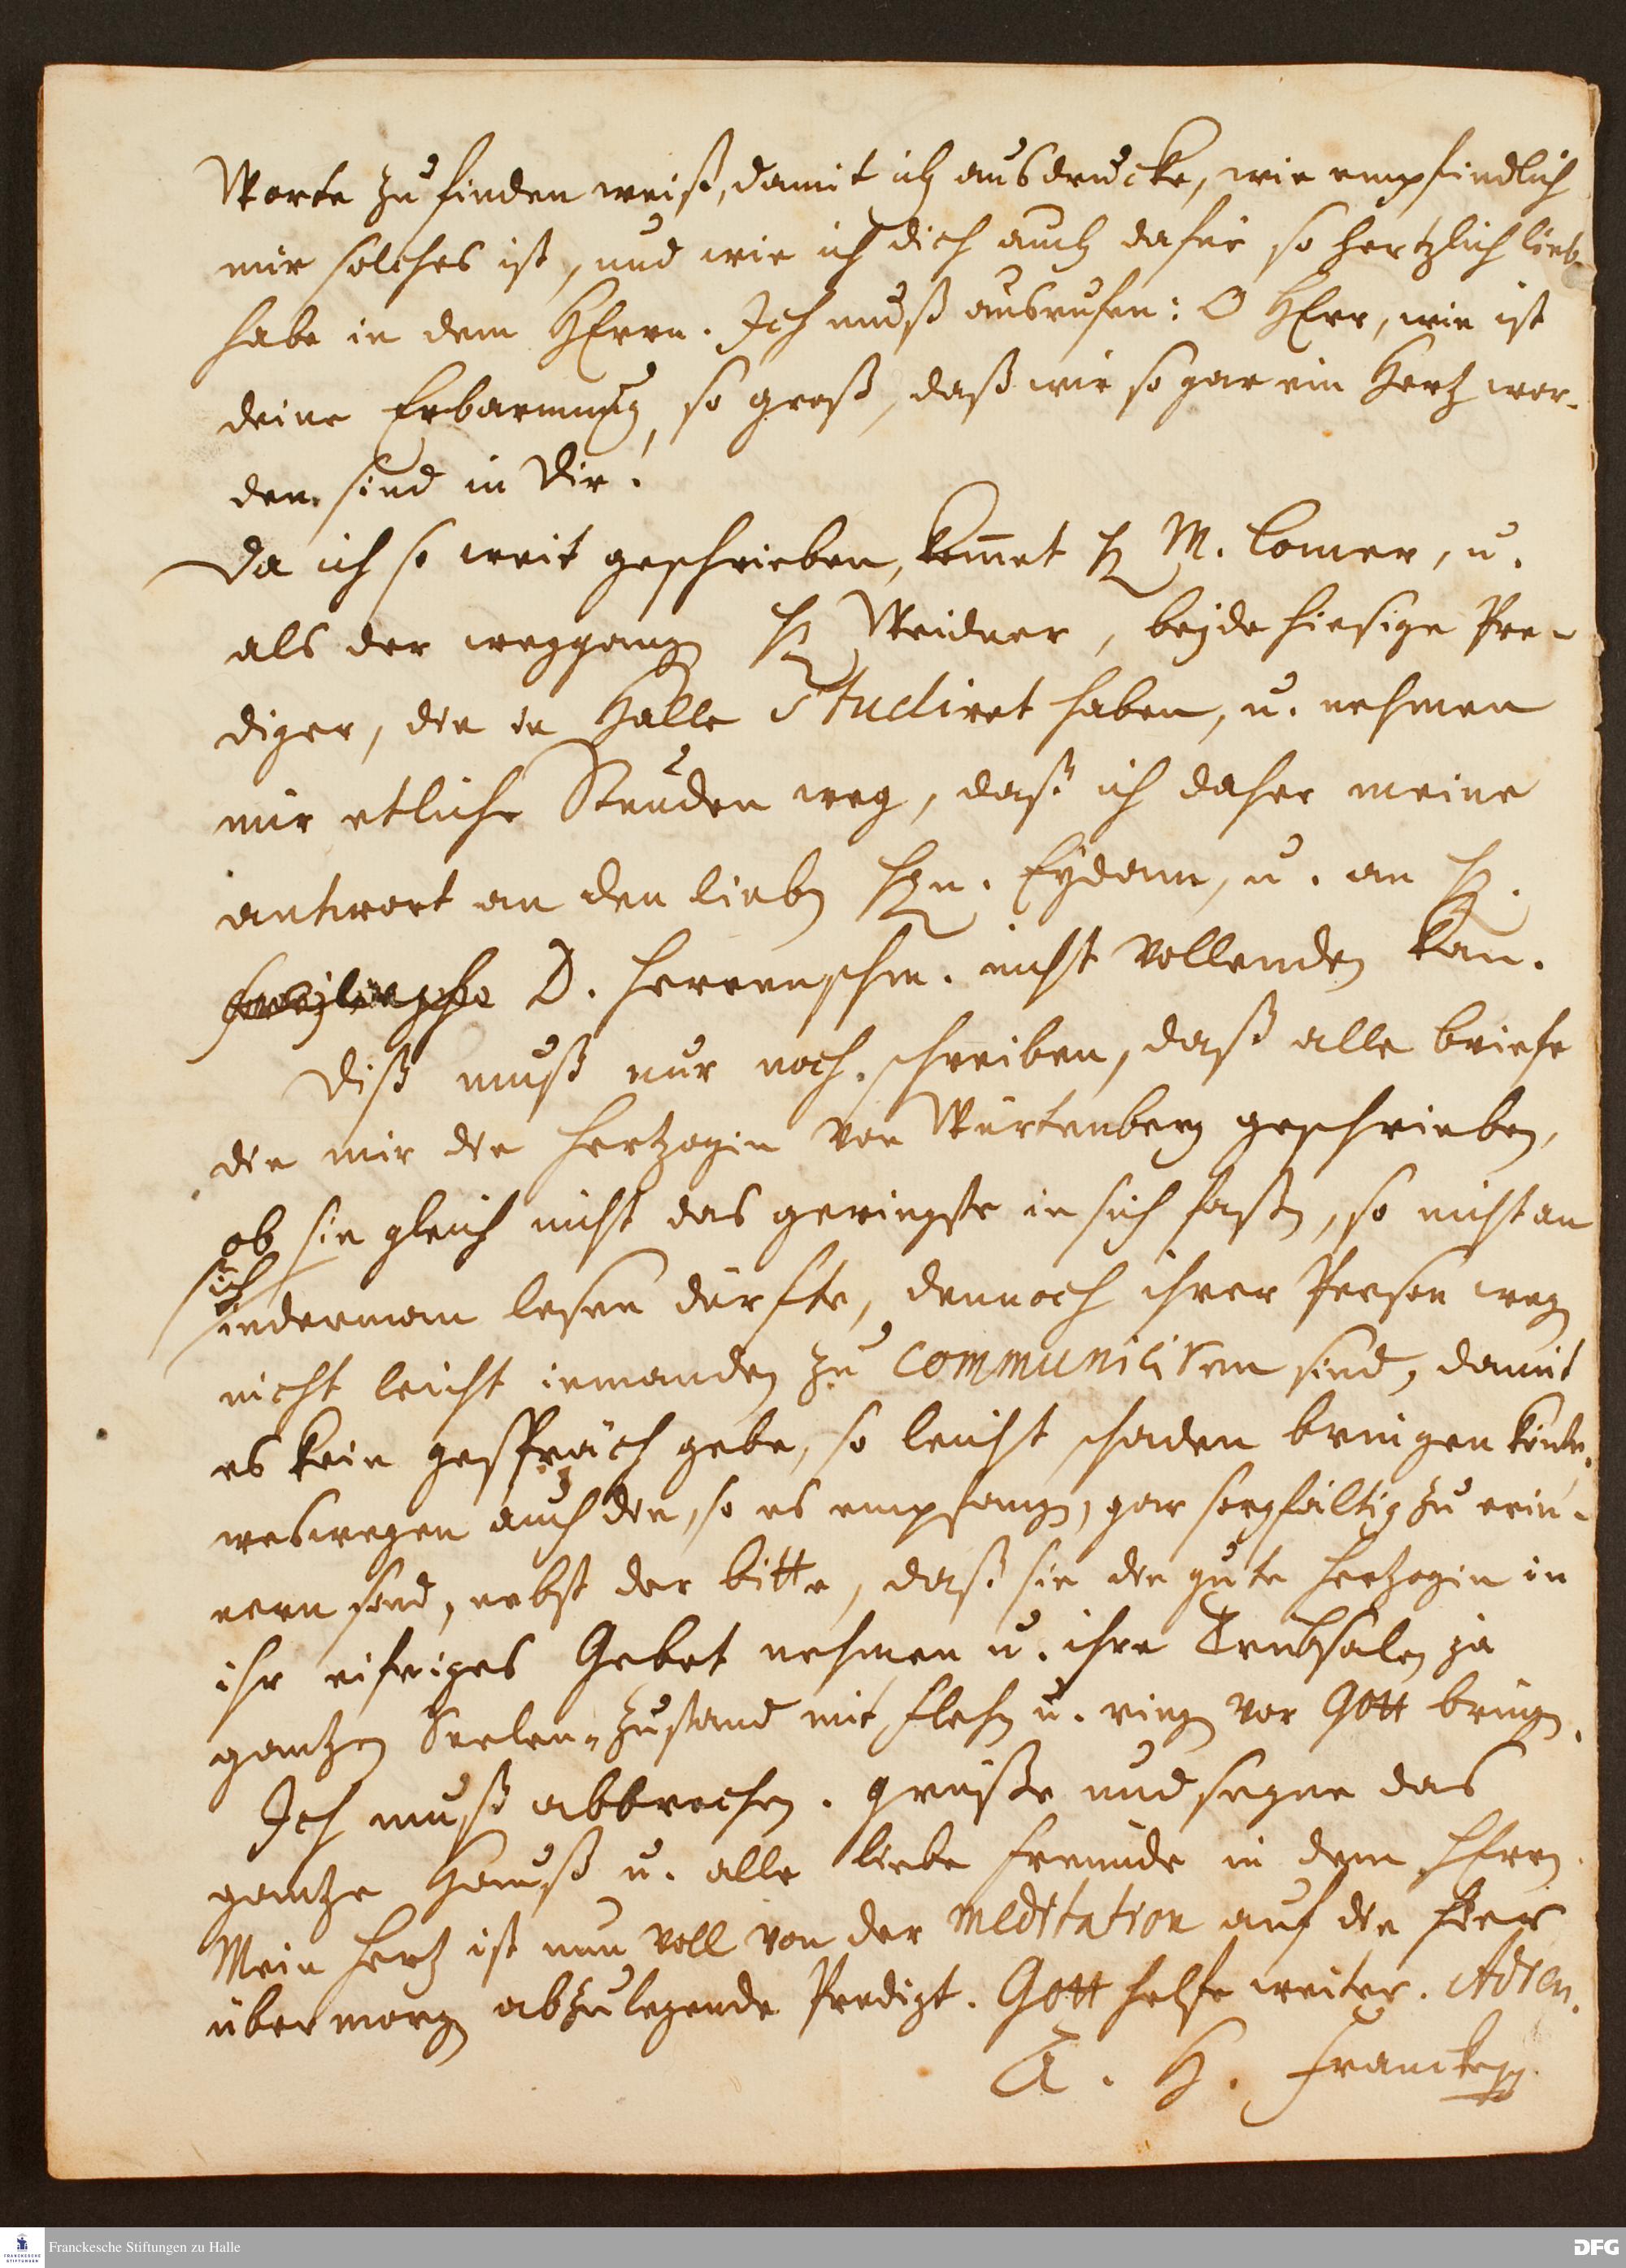 Worte zu finden weiß, damit ich ausdrucke, wie empfindlich
mir solches ist, und wie ich dich auch dafür so hertzlich lieb
habe in dem HErrn. Ich muß ausrufen: O HErr, wie ist
deine Erbarmung so groß, daß wir so gar ein Hertz wor-
den sind in Dir!
Da ich so weit geschrieben, kom̄et H. M. Lomer, u.
als der weggang H. Weidner, beyde hiesige Pre-
diger, die in Halle Studiret haben, u. nehmen
mir etliche Stunden weg, daß ich daher meine
antwort an den lieben Hn. Eydam, u. an H.
D. Herrenschm. nicht vollenden kan.
Diß muß nur noch schreiben, daß alle briefe
die mir die Hertzogin von Würtenberg geschrieben,
ob sie gleich nicht das geringste in sich faßen, so nicht an
sich
iederman lesen dürfte, dennoch ihrer Person wegen
nicht leicht iemanden zu communiciren sind, damit
es kein gespräch gebe, so leicht schaden bringen könte.
weswegen auch die, so es empfangen, gar sorgfältig zu erin-
nern sind, nebst der bitte, daß sie die gute Hertzogin in
ihr eifriges Gebet nehmen u. ihre Trübsalen ja
gantzen Seelen-Zustand mit flehen u. ringen vor Gott bringen.
Ich muß abbrechen. grüße und segne das
gantze Hauß u. alle liebe freunde in dem HErrn.
Mein Hertz ist nun voll von der meditation auf die hier
übermorgen abzulegende Predigt. Gott helfe weiter. Adieu.
A. H. Francke
Franckesche Stiftungen zu Halle
FRANCKESCHE
STIFTUNGEN
DFG